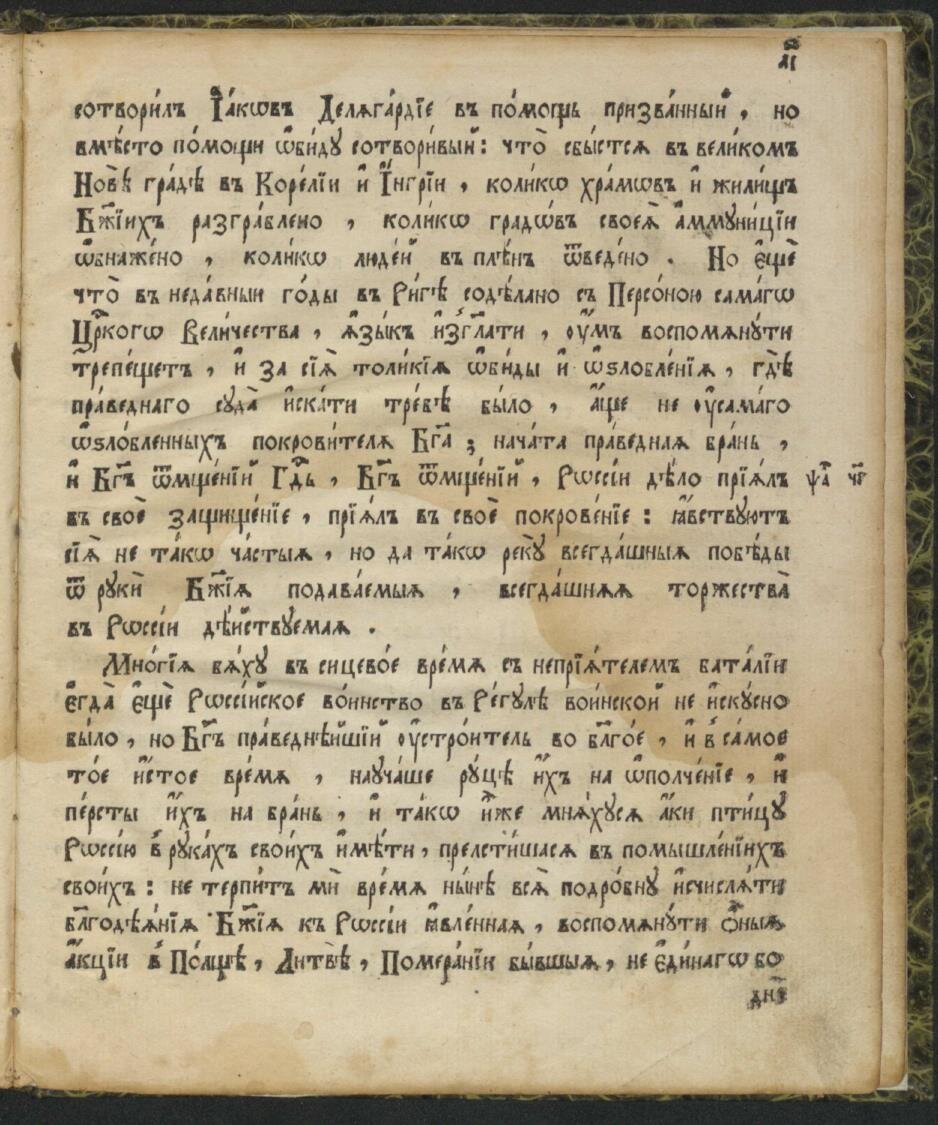 а҃і
сотвори́лъ І҆а́кѡвъ Делѧга́рдїе въ по́мощь призва́нный , но
вмѣ́сто по́мощи ѡ҆би́ду сотвори́вый : что̀ сбы́стсѧ въ вели́комъ
Но́вѣ гра́дѣ въ Коре́лїи и҆ І҆́нгрїи , коли́кѡ хра́мѡвъ и҆ жили́щъ
Бж҃їихъ разгра́блено , коли́кѡ градѡ́въ своеѧ̀ а҆ммꙋни́цїи
ѡ҆бнаже́но , коли́кѡ люде́й въ плѣ́нъ ѿведе́но . Но є҆щѐ
что̀ въ неда́вныи го́ды въ Ри́гѣ содѣ́лано съ Персо́ною сама́гѡ
Цр҃когѡ Вели́чества , ѧ҆зы́къ и҆зг҃лати , ᲂу҆́мъ воспомѧнꙋ́ти
трепе́щетъ , и҆ за сїѧ̀ толи́кїѧ ѡ҆би́ды и҆ ѡ҆ѕлобле́нїѧ , гдѣ̀
пра́веднаго сꙋда̀ и҆ска́ти тре́бѣ бы́ло , а҆́ще не ᲂу҆сама́го
ѡ҆ѕло́бленныхъ покрови́телѧ Бг҃а ; нача́та пра́веднаѧ бра́нь ,
и҆ Бг҃ъ ѿмще́нїй Гд҃ь , Бг҃ъ ѿмще́нїй , Рѡссі́и дѣ́ло прїѧ́лъ ѱа҃ ч҃г
въ своѐ защище́нїе , прїѧ́лъ въ своѐ покрове́нїе : ꙗ҆́вствꙋютъ
сїѧ̀ не та́кѡ ча́стыѧ , но да та́кѡ рекꙋ̀ всегда́шныѧ побѣ́ды
ѿ рꙋкѝ Бж҃їѧ подава́емыѧ , всегда́шнѧѧ торжества̀
въ Рѡссі́и дѣ́йствꙋемаѧ .
Мно́гїѧ бѧ́хꙋ въ сицево́е вре́мѧ съ непрїѧ́телемъ бата́лїи
є҆гда̀ є҆щѐ Рѡссі́йское во́инство въ Ре́гꙋлѣ во́инской не и҆скꙋ́сно
бы́ло , но Бг҃ъ пра́веднѣйшїй ᲂу҆стро́итель во бл҃го́е , и҆ в̾ са́мое
то́е и҆́стое вре́мѧ , наꙋча́ше рꙋ́цѣ и҆́хъ на ѡ҆полче́нїе , и҆
пе́рсты и҆́хъ на бра́нь , и҆ та́кѡ и҆̀же мнѧ́хꙋсѧ а҆́ки пти́цꙋ
Рѡссі́ю в̾ рꙋка́хъ свои́хъ и҆мѣ́ти , прелсти́шасѧ въ помышле́нїихъ
свои́хъ : не терпи́тъ мѝ вре́мѧ ны́нѣ всѧ̀ подро́бнꙋ и҆счислѧ́ти
бл҃годѣѧ́нїѧ Бж҃їѧ къ Рѡссі́и ꙗ҆вле́ннаѧ , воспомѧнꙋ́ти ѻ҆́ныѧ
а҆́кцїи в̾ По́лщѣ , Литвѣ̀ , Помера́нїи бы́вшыѧ , не є҆ди́нагѡ бо